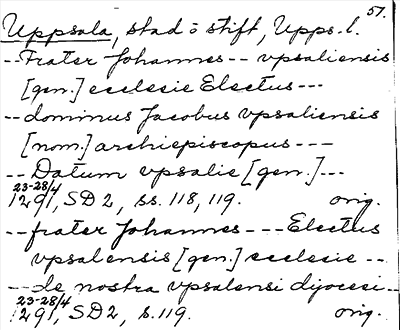 57.
Uppsala, stad o stift, Upps. l.
--Frater Johannes -- vpsaliensis
[gen.] ecclesie Electus ---
-- dominus Jacobus vpsaliensis
[nom.] archiepiscopus ---
-- Datum vpsalie [gen.] ---
23-28/4
1291, SD 2, ss. 118, 119. orig.
-- frater Johannes --- Electus
vpsalensis [gen.] ecclesie --
-- de nostra vpsalensi dijocesi --
23-28/4
1291, SD 2, s. 119. orig.